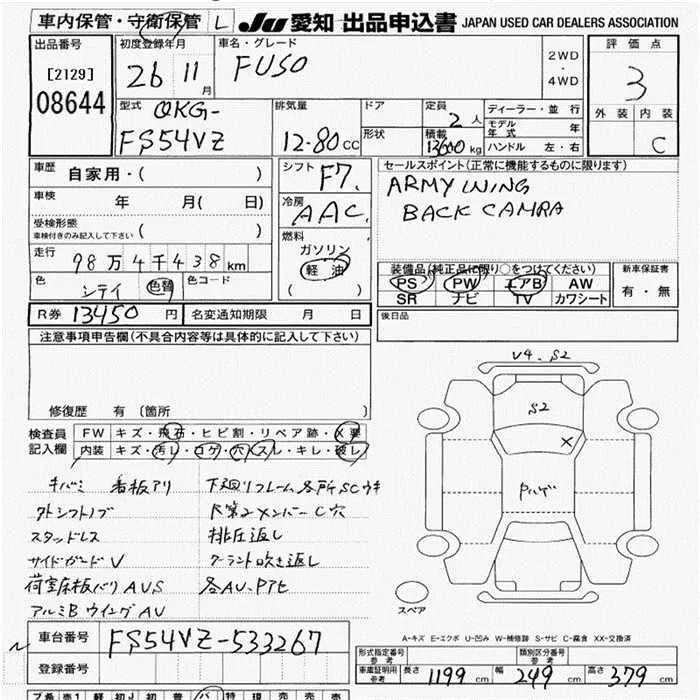 車内保管・守衛保管 L JU 愛知 出品申込書 JAPAN USED CAR DEALERS ASSOCIATION
出品番号
[2129]
08644
初度登録年月
26 11月
車名・グレード
FUSO
2WD
・
4WD
評価点
3
外装 内装
C
型式 QKG-
FS54VZ
排気量
12-80 cc
ドア
形状
定員
2人
積載
kg
ディーラー・並行
モデル年式 年
ハンドル 左・右
車歴 自家用・( )
車検 年 月( 日)
受検形態
車検付きのみ記入して下さい ( )
走行
98万4千438km
色
シテイ 色替 色コード
シフト F7.
冷房
AAC.
燃料
ガソリン
軽油
( )
セールスポイント(正常に機能するものに限ります)
ARMY WING
BACK CAMRA
装備品(純正品に限り○をつけてください)
PS PW エアB AW
SR ナビ TV カワシート
新車保証書
有・無
R券 13450円 名変通知期限 月 日
後日品
注意事項申告欄(不具合内容等は具体的に記入して下さい)
修復歴 有 〔箇所 〕
検査員記入欄
FW キズ・飛石・ヒビ割・リペア跡・X要
内装 キズ・汚レ・コゲ・穴・スレ・キレ・破レ
キバミ 看板アリ
外シフトノブ
スタッドレス
サイドガード V
荷室床板バリ AVS
アルミB ウイングAV
下廻リフレーム各所SCサキ
K第2メンバーC穴
排圧返し
クーラント吹き返し
V4.S2
S2
X
スペア
A-キズ E-エクボ U-凹み W-補修跡 S-サビ C-腐食 XX-交換済
車台番号 FS54VZ-533267
登録番号
形式指定番号 参考
類別区分番号 参考
車庫証明用 参考 長さ 1199 cm 幅 249 cm 高さ 379 cm